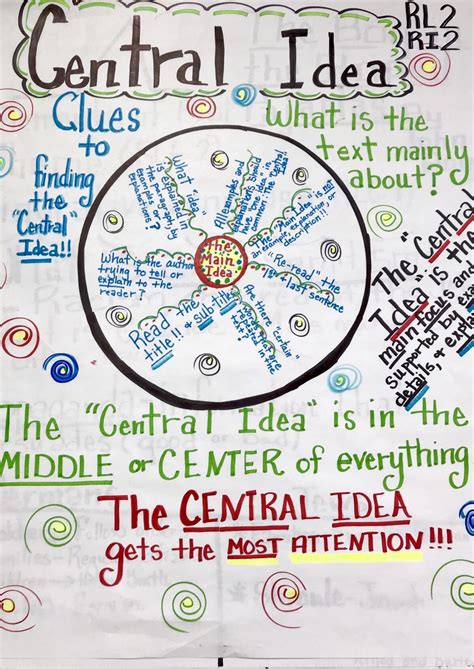 Central Idea
RL2
RI2
Clues
to
finding
the
"Central"
Idea!!
What is the
text mainly
about?
The
Main
Idea
What idea
is supported in
the paragraph by
examples
explanations?
All examples and
explanations should
have one idea in
common = the Central
The "Main Idea" is not
an example, explanation or
description!!!
"Re-read" the
1st & last sentence
Are there "certain"
in the
text?
Read the
title!! & sub-titles
What is the author
trying to tell or
explain to the
reader?
The "Central
Idea" is the
main focus and
supported by
details, &
The "Central Idea" is in the
MIDDLE or CENTER of everything
The CENTRAL IDEA
gets the MOST ATTENTION!!!